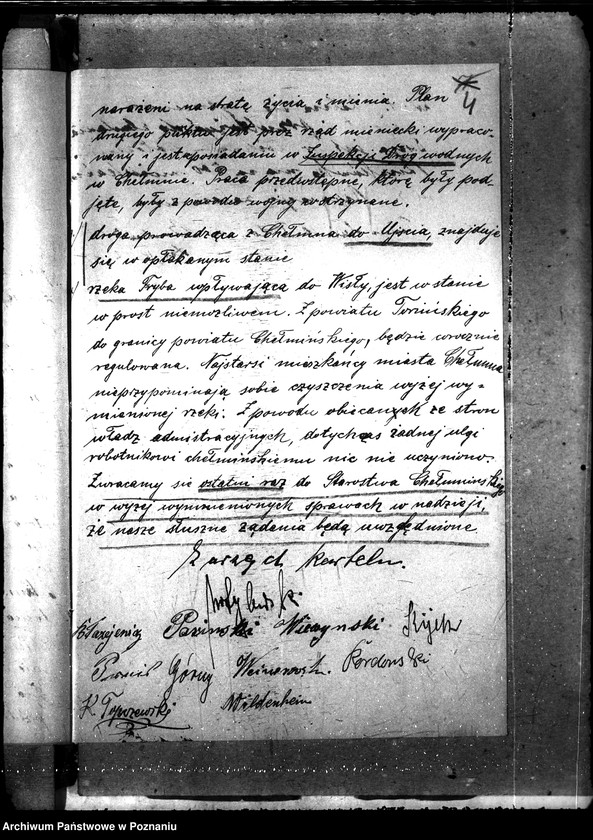 4
narażeni na stratę życia i mienia. Plan
drugiego punktu jest przez rząd niemiecki wypraco-
wany i jest w posiadaniu w Inspekcji Dróg wodnych
w Chełmnie. Prace przedwstępne, które były pod-
jęte, były z powodu wojny wstrzymane.
droga prowadząca z Chełmna do Ujścia, znajduje
się w opłakanym stanie
rzeka Fryba wpływająca do Wisły, jest w stanie
w prost niemożliwem. Z powiatu Toruńskiego
do granicy powiatu Chełmińskiego, będzie corocznie
regulowana. Najstarsi mieszkańcy miasta Chełmna
nieprzypominają sobie czyszczenia wyżej wy-
mienionej rzeki. Z powodu obiecanych ze stron
władz admistracyjnych, dotychczas żadnej ulgi
robotnikowi chełmińskiemu nic nie uczyniono.
Zwracamy się ostatni raz do Starostwa Chełmińskiego
w wyżej wymienionych sprawach w nadzieji,
że nasze słuszne żądania będą uwzględnione
Zarząd kartelu.
Wiczynski
Górny
Kordonski
K. Topozewski
Wildenhein
Archiwum Państwowe w Poznaniu